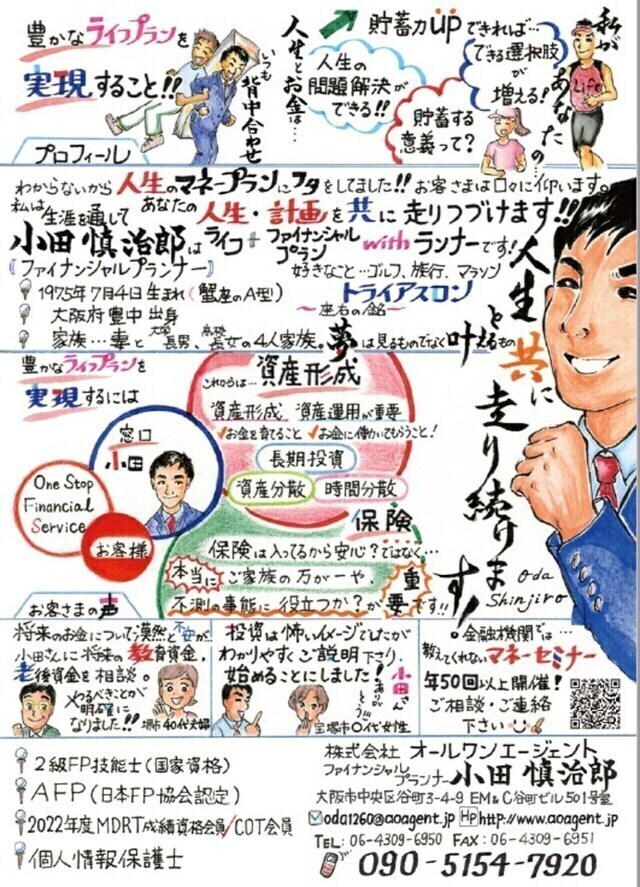 豊かなライフプランを
実現すること!!
人生とお金は…
いつも
背中合わせ
貯蓄力UPできれば…
できる選択肢
が
増える!
人生の
問題解決が
できる!!
貯蓄する
意義って?
私が
あなたの…
Life
プロフィール
わからないから人生のマネープランにフタをしてました!!お客さまは口々に仰います。
私は生涯を通してあなたの人生・計画を共に走りつづけます!!
小田 慎治郎はライフ+ファイナンシャルプランwithランナーです!
《ファイナンシャルプランナー》
好きなこと…ゴルフ、旅行、マラソン
トライアスロン
1975年7月4日生まれ(蟹座のA型)
大阪府豊中出身
〜座右の銘〜
家族…妻と長男、長女の4人家族。
夢は見るものでなく叶えるもの
人生と共に走り続けます!
Oda
Shinjiro
豊かなライフプランを
実現するには
窓口
小田
One Stop
Financial
Service
お客様
これからは…資産形成
資産形成 資産運用が重要
✓お金を育てること ✓お金に働いてもらうこと!
長期投資
資産分散
時間分散
保険
保険は入ってるから安心?ではなく…
本当にご家族の万が一や、
不測の事態に役立つか?が重要です!!
お客さまの声
将来のお金について漠然と不安が
小田さんに将来の教育資金,
老後資金を相談。
やるべきことが
明確に
なりました!!
堺市40代夫婦
投資は怖いイメージでしたが
わかりやすくご説明下さり、
始めることにしました!
小田さん
ありがとう!!
宝塚市〇代女性
金融機関では…
教えてくれないマネーセミナー
年50回以上開催!
ご相談・ご連絡
下さい
2級FP技能士(国家資格)
AFP(日本FP協会認定)
2022年度MDRT成績資格会員/COT会員
個人情報保護士
株式会社 オールワンエージェント
ファイナンシャル
プランナー 小田 慎治郎
大阪市中央区谷町3-4-9 EM&C谷町ビル501号室
oda1260@aoagent.jp HP http://www.aoagent.jp
TEL: 06-4309-6950 FAX: 06-4309-6951
090-5154-7920